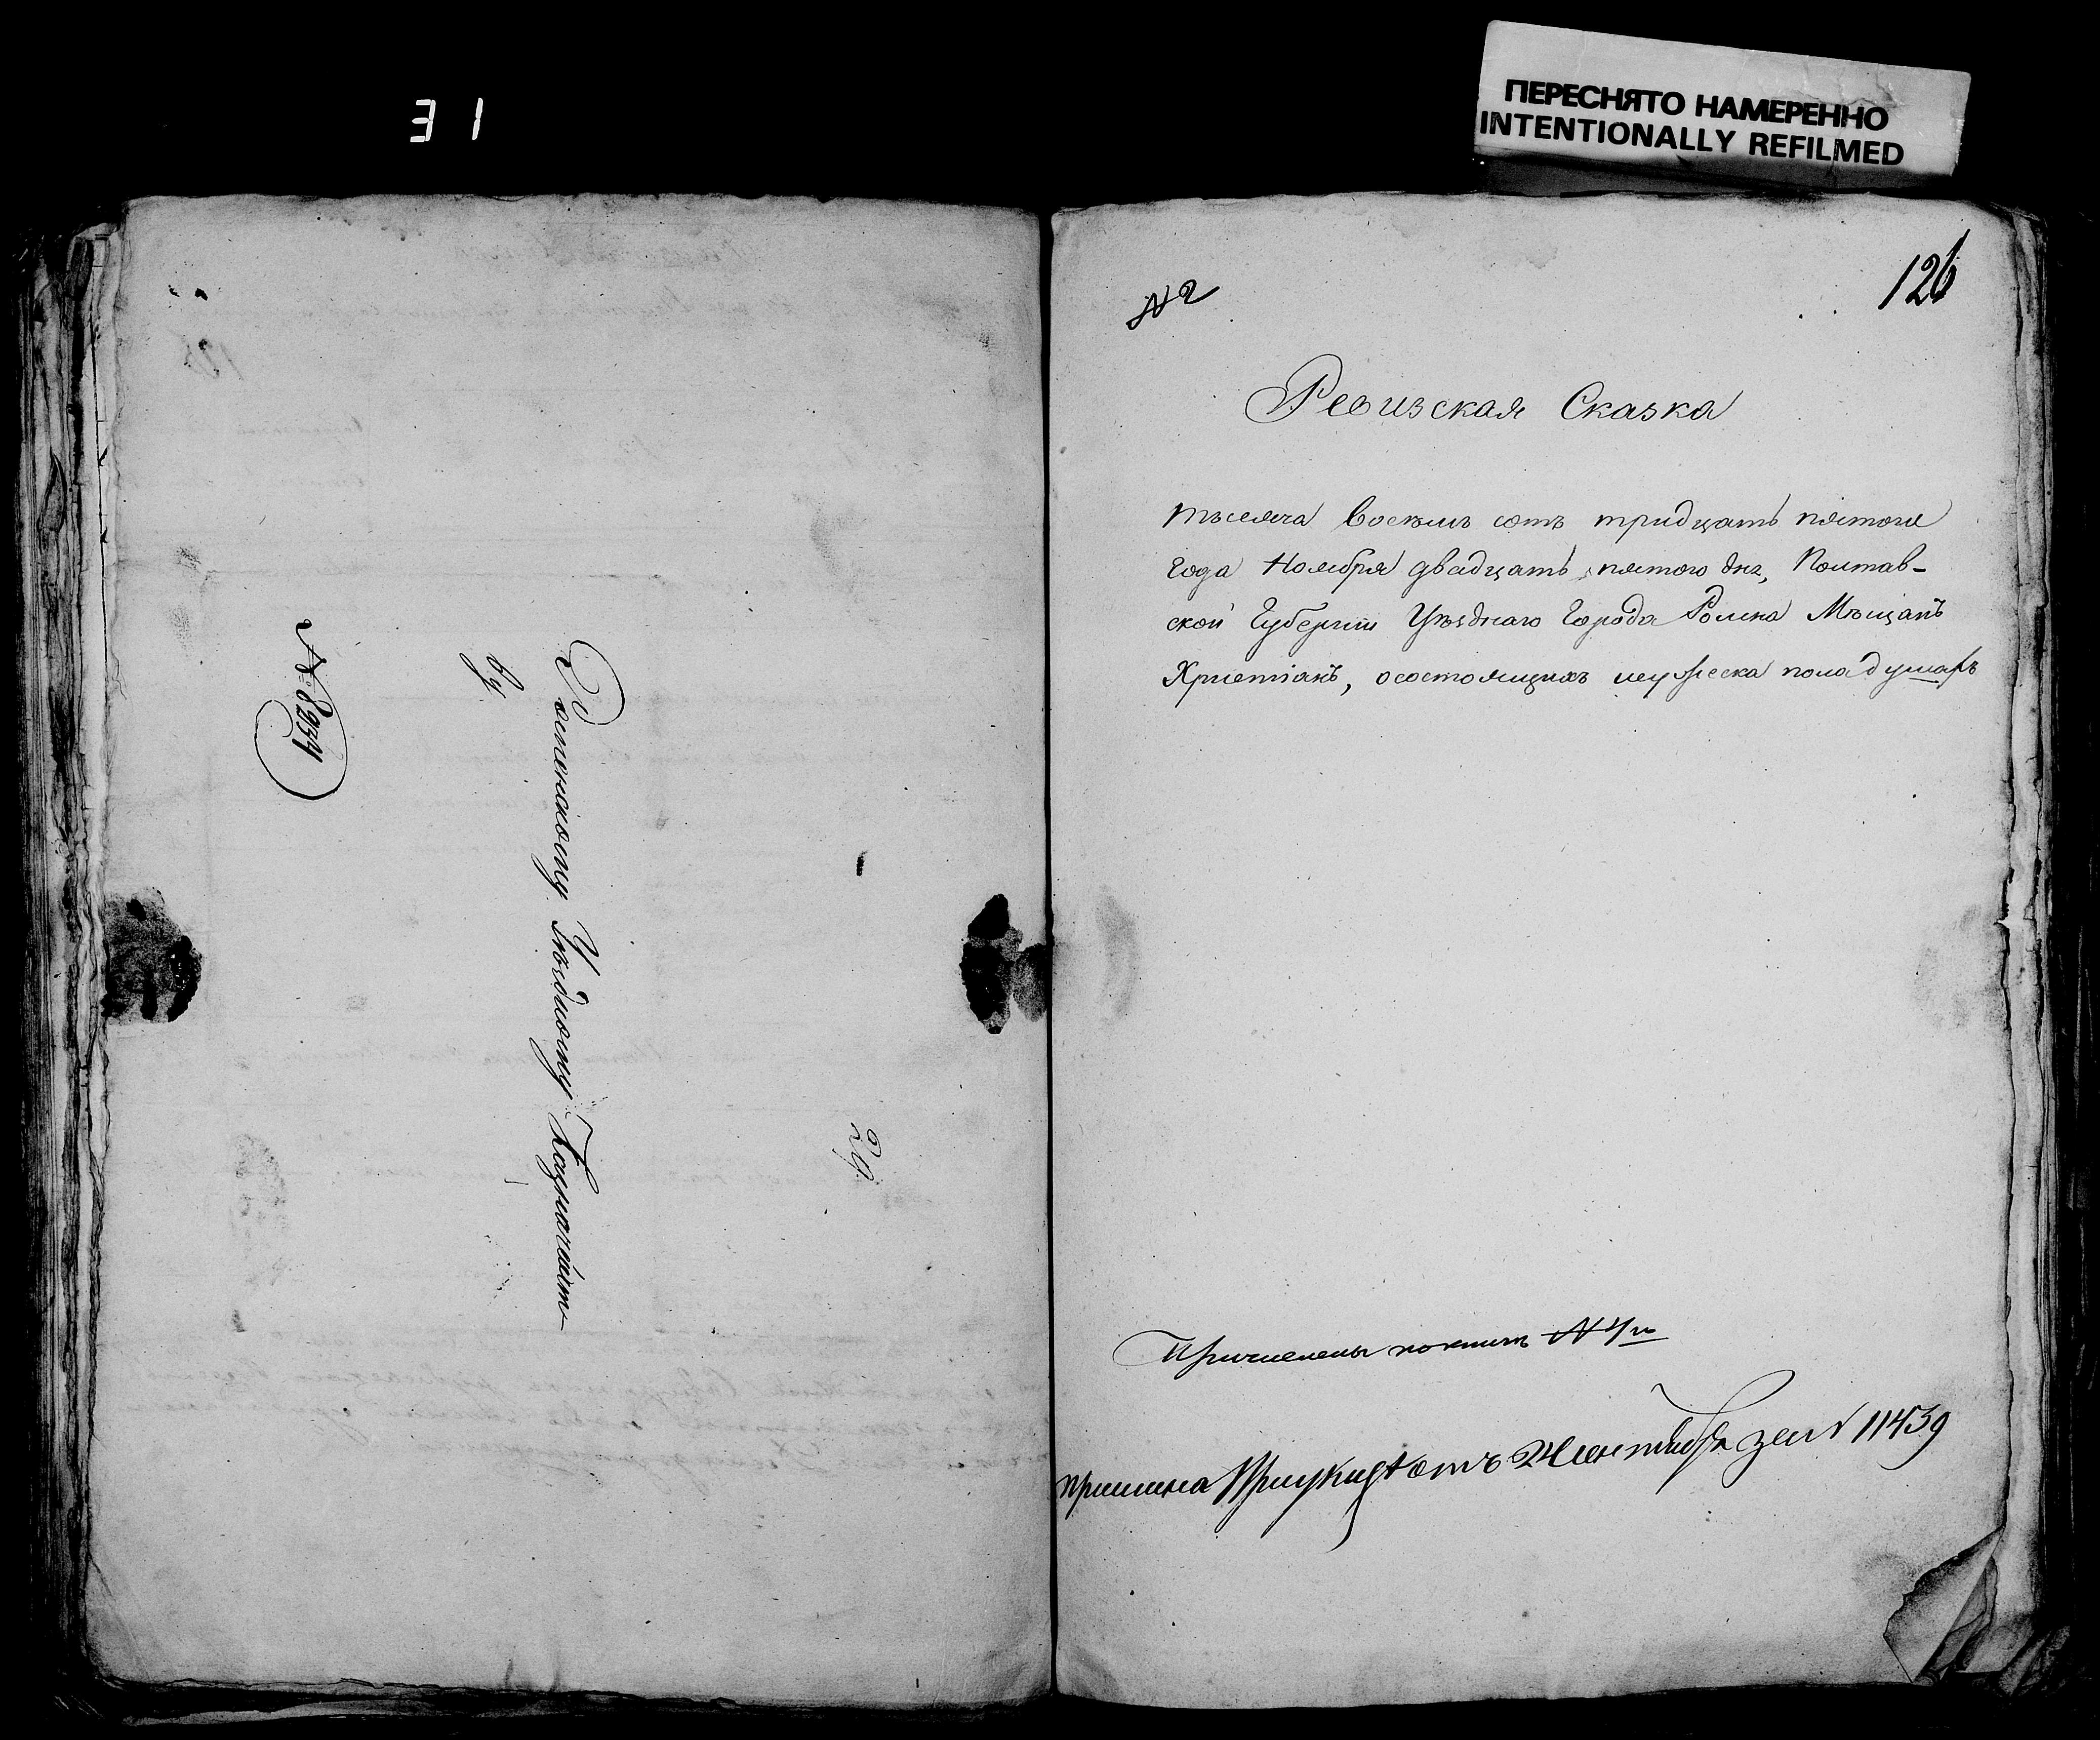 31
ПЕРЕСНЯТО НАМЕРЕННО
INTENTIONALLY REFILMED
Роменскому Уѣздному Казначейст-
ву
№ 8934
29.
126
№ 2
Ревизская Сказка
тысяча восемь сотъ тридцать пятого
года Ноября двадцать пятого дня, Полтав-
ской Губернии Уѣзднаго Города Ромна Мѣщанъ
Христіанъ, осостоящихъ мужеска пола душахъ
Причислены по книгѣ № 4й
при отъ 24 сентября за № 11439